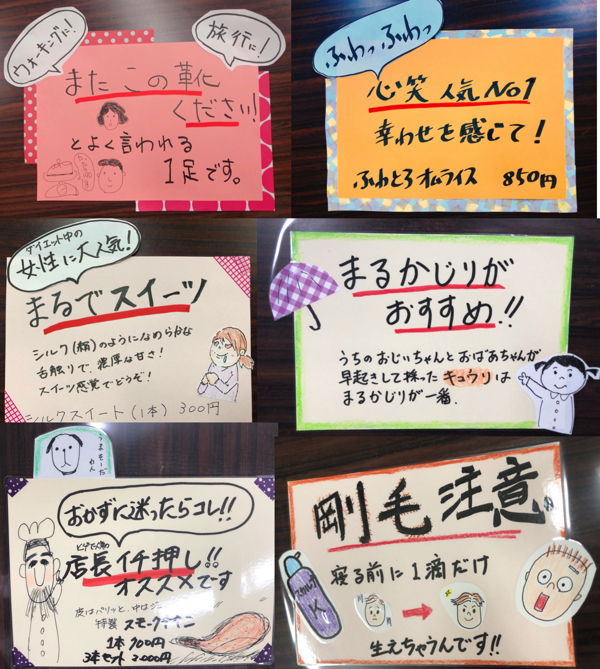 ウォーキングに!
旅行に!
また この靴
ください!
とよく言われる
1足です。
ふわっ ふわっ
心笑 人気 No1
幸わせを感じて!
ふわとろオムライス 850円
ダイエット中の
女性に大人気!
まるでスイーツ
シルク(絹)のようになめらかな
舌触りで、濃厚な甘さ!
スイーツ感覚でどうぞ!
シルクスイート(1本)300円
まるかじりが
おすすめ!!
うちのおじいちゃんとおばあちゃんが
早起きして採ったキュウリは
まるかじりが一番.
うまそーだ
わん
おかずに迷ったらコレ!!
店長イチ押し!!
オススメです
皮はパリッと、中は
特製 スモークチキン
1本 700円
3本セット 2000円
剛毛 注意
寝る前に1滴だけ
K
生えちゃうんです!!